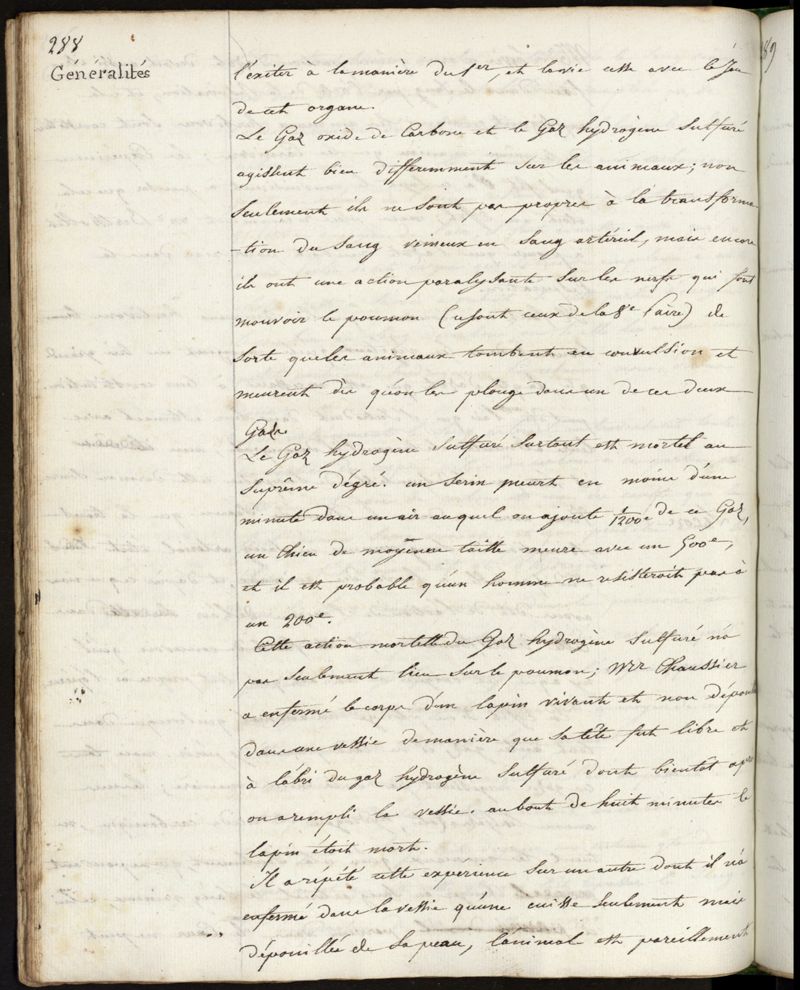 288
289
Généralités
l'éxiter à la manière du 1er, et la vie cesse avec le Jeu
de cet organe.
Le Gaz oxide de Carbone et le Gaz hydrogène Sulfuré
agissent bien differemment sur les animaux; non
Seulement ils ne sont pas propres à la transforma
-tion du Sang veineux en Sang artériel, mais encore
ils ont une action paralysante sur les nerfs qui font
mouvoir le poumon (ce sont ceux de la 8e Paire) de
sorte que les animaux tombent en convulsion et
meurent dès qu'on les plonge dans un de ces deux
Gaz.
Le Gaz hydrogène Sulfuré Surtout est mortel au
Suprême dégré. un Serin meurt en moins d'une
minute dans un air auquel on ajoute 1/1200e de ce Gaz,
un Chien de moyenne taille meure avec un 500e,
et il est probable qu'un homme ne résisteroit pas à
un 200e.
Cette action mortelle du Gaz hydrogène Sulfuré n'a
pas Seulement lieu Sur le poumon; Mr Chaussier
a enfermé le corps d'un lapin vivant et non dépouillé
dans une vessie de manière que sa tête fut libre et
à l'abri du gaz hydrogène Sulfuré dont bientot après
on a rempli la vessie. au bout de huit minutes le
lapin étoit mort.
Il a répété cette expérience Sur un autre dont il n'a
enfermé dans la vessie qu'une cuisse seulement mais
dépouillée de sa peau, l'animal est pareillement